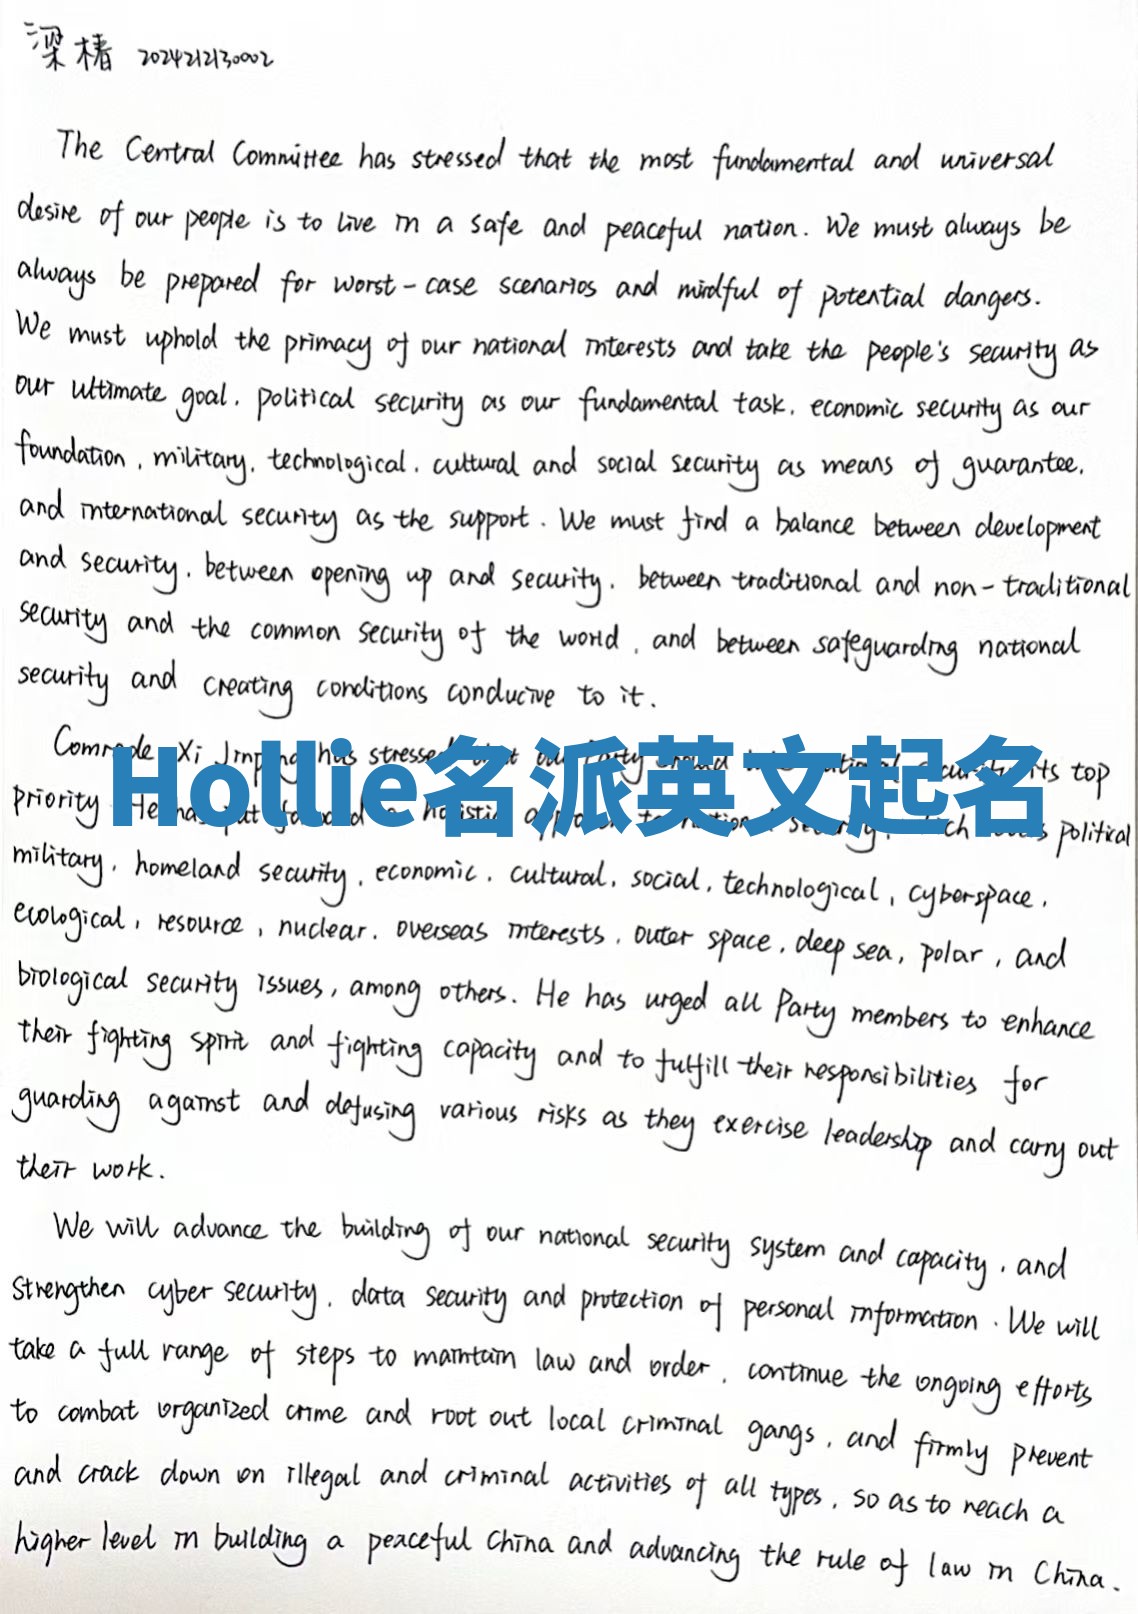 梁椿 2024212130002
The Central Committee has stressed that the most fundamental and universal
desire of our people is to live in a safe and peaceful nation. We must always be
always be prepared for worst-case scenarios and mindful of potential dangers.
We must uphold the primacy of our national interests and take the people's security as
our ultimate goal, political security as our fundamental task, economic security as our
foundation, military, technological, cultural and social security as means of guarantee,
and international security as the support. We must find a balance between development
and security, between opening up and security, between traditional and non-traditional
security and the common security of the world, and between safeguarding national
security and creating conditions conducive to it.
Comrade Xi Jinping has stressed that our Party its top
Hollie名派英文起名
priority He has put political
military, homeland security, economic, cultural, social, technological, cyberspace,
ecological, resource, nuclear, overseas interests, outer space, deep sea, polar, and
biological security issues, among others. He has urged all Party members to enhance
their fighting spirit and fighting capacity and to fulfill their responsibilities for
guarding against and defusing various risks as they exercise leadership and carry out
their work.
We will advance the building of our national security system and capacity, and
strengthen cyber security, data security and protection of personal information. We will
take a full range of steps to maintain law and order, continue the ongoing efforts
to combat organized crime and root out local criminal gangs, and firmly prevent
and crack down on illegal and criminal activities of all types, so as to reach a
higher level in building a peaceful China and advancing the rule of law in China.